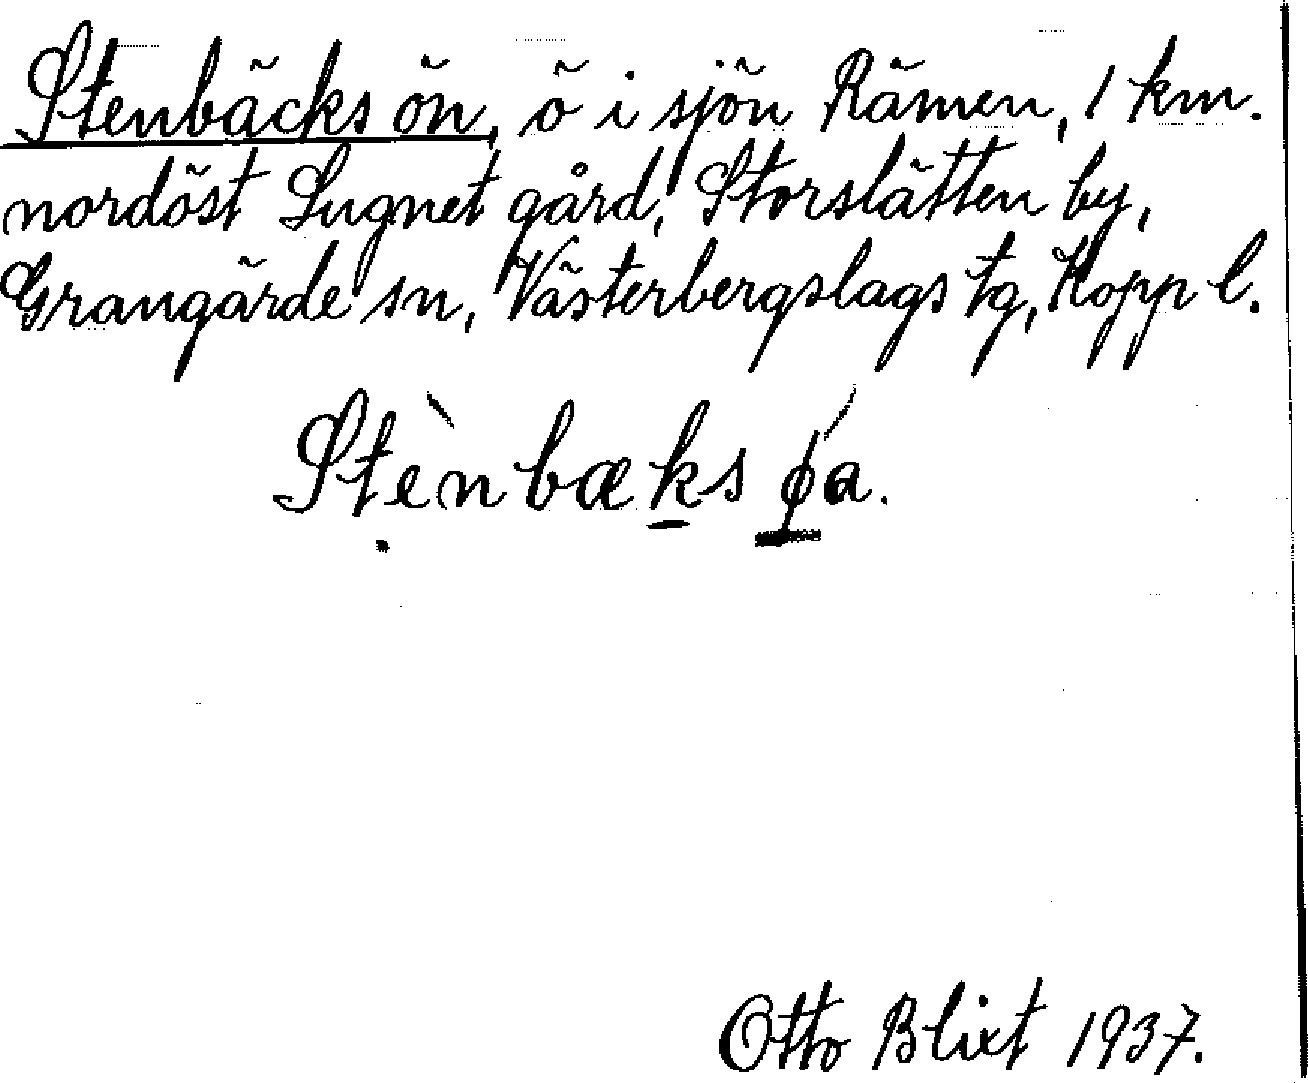 Stenbäcks ön, ö i sjön Rämen, 1 km.
nordöst Lugnet gård, Storslätten by,
Grangärde sn, Västerbergslags tg, Kopp l.
Stènbæks ǿa.
Otto Blixt 1937.